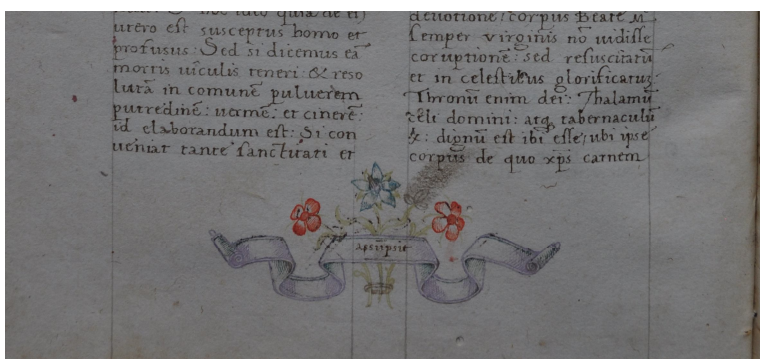 utero est susceptus homo et
profusus: Sed si dicemus eā
mortis uiculis teneri: & reso
lutā in comunē puluerem
putredinē: uermē: et cinerē:
id elaborandum est: Si con
ueniat tante sanctitati et
devotione: corpus Beate M
semper virginis nō uidisse
coruptionē: sed resuscitatū
et in celestibus glorificatuʒ
Thronū enim dei: Thalamū
celi domini: atqꝫ tabernaculū
dignū est ibi esse: ubi ipse
corpus de quo xp̄s carnem
Assūpsit